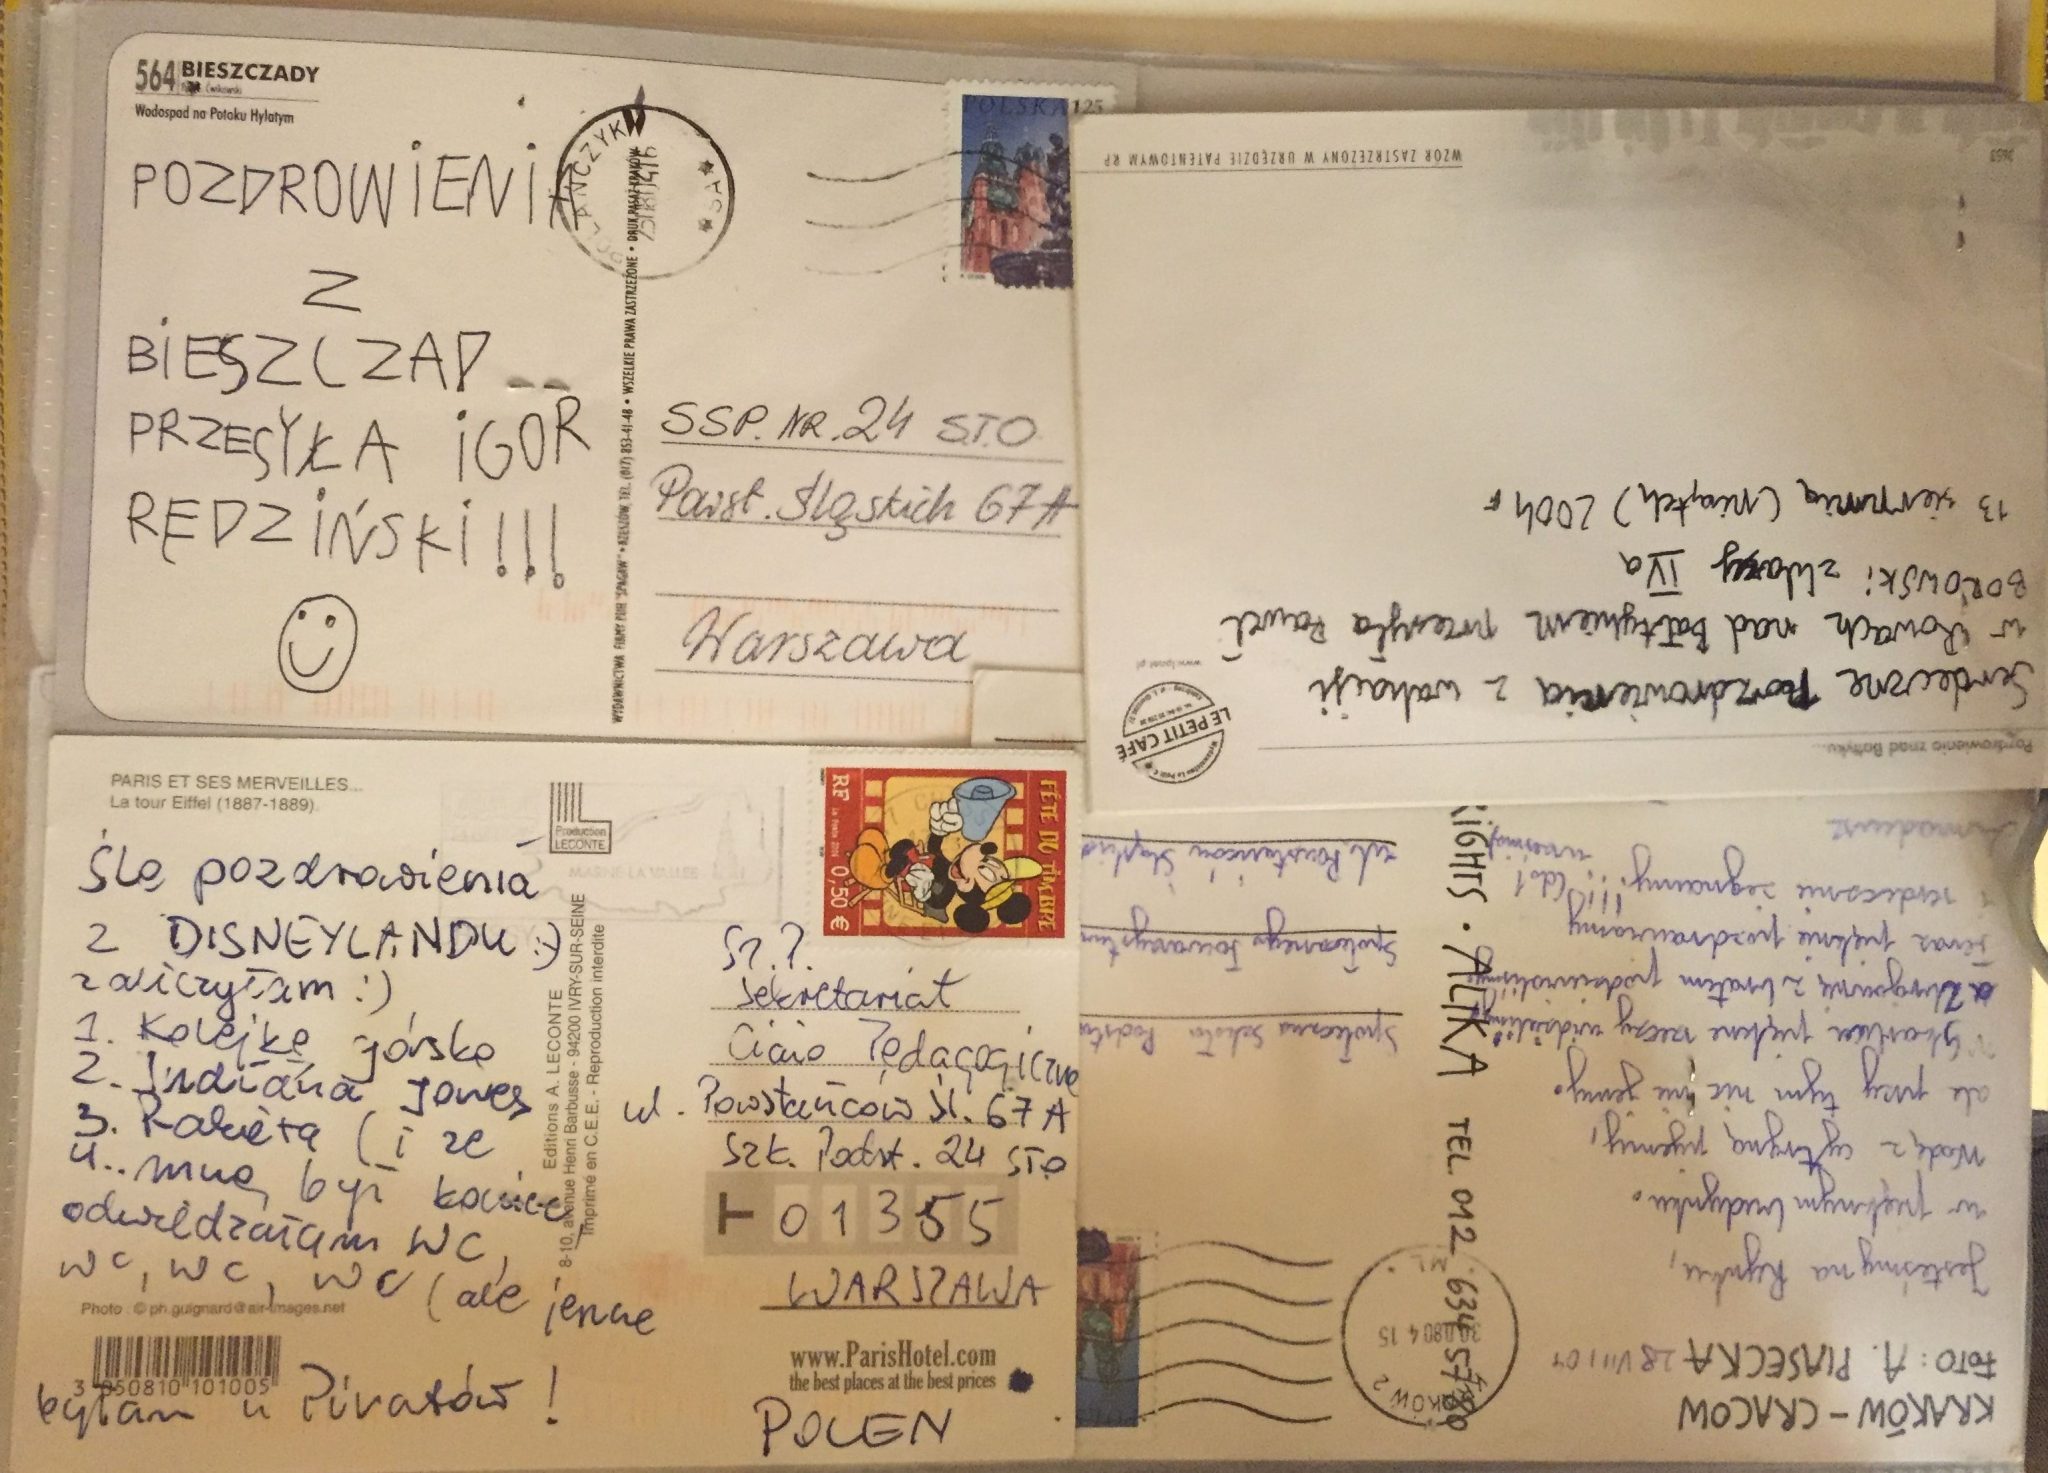 564 BIESZCZADY
Wodospad na Potoku Hylatym
POZDROWIENIA
Z
BIESZCZAD
PRZESYŁA IGOR
RĘDZIŃSKI!!!
POLAŃCZYK
SA
WYDAWNICTWA FIRMY PUH "SPAGAW" • RZESZÓW, TEL. (017) 853-41-48 • WSZELKIE PRAWA ZASTRZEŻONE • DRUK PASAŻ KRAKÓW
POLSKA 125
SSP. NR. 24 S.T.O.
Powst. Śląskich 67A
Warszawa
Pozdrowienia znad Bałtyku...
Serdeczne Pozdrowienia z wakacji
w Rowach nad Bałtykiem przesyła Paweł
BOROWSKI z klasy IVa
13 sierpnia (piątek) 2004 r
LE PETIT CAFÉ
www.lpcat.pl
WZÓR ZASTRZEŻONY W URZĘDZIE PATENTOWYM RP
PARIS ET SES MERVEILLES...
La tour Eiffel (1887-1889).
Production
LECONTE
MARNE LA VALLEE
Śle pozdrowienia
z DISNEYLANDU :)
zaliczyłam :)
1. Kolejkę górską
2. Indiana Jones
3. Rakieta (i ze
4.. mną był koniec
odwiedzałam WC,
WC, WC, WC (ale jeszcze
byłam u Piratów!
Photo : © ph.guignard@air-images.net
3 050810 101005
Editions A. LECONTE
8-10, avenue Henri Barbusse - 94200 IVRY-SUR-SEINE
Imprimé en C.E.E. - Reproduction interdite
FÊTE DU TIMBRE
RF La Poste 0,50 €
Sz.P.
Sekretariat
Ciało Pedagogiczne
ul. Powstańców Śl. 67A
Szk. Podst. 24 STO
01355
WARSZAWA
www.ParisHotel.com
the best places at the best prices
POLEN
KRAKÓW - CRACOW
FOTO: A. PIASECKA 28 VIII 04
Jesteśmy na Rynku,
w pięknym budynku.
Wodę z cytryną pijemy,
ale przy tym nic nie jemy.
piękne rzeczy widzieliśmy
z bratem podziwialiśmy
Teraz pięknie pozdrawiamy
i serdecznie żegnamy!!!
RIGHTS · ALIKA TEL. 012 634 57 80
Społeczna Szkoła Podsta
Społecznego Towarzystwa
ul. Powstańców Śląskich